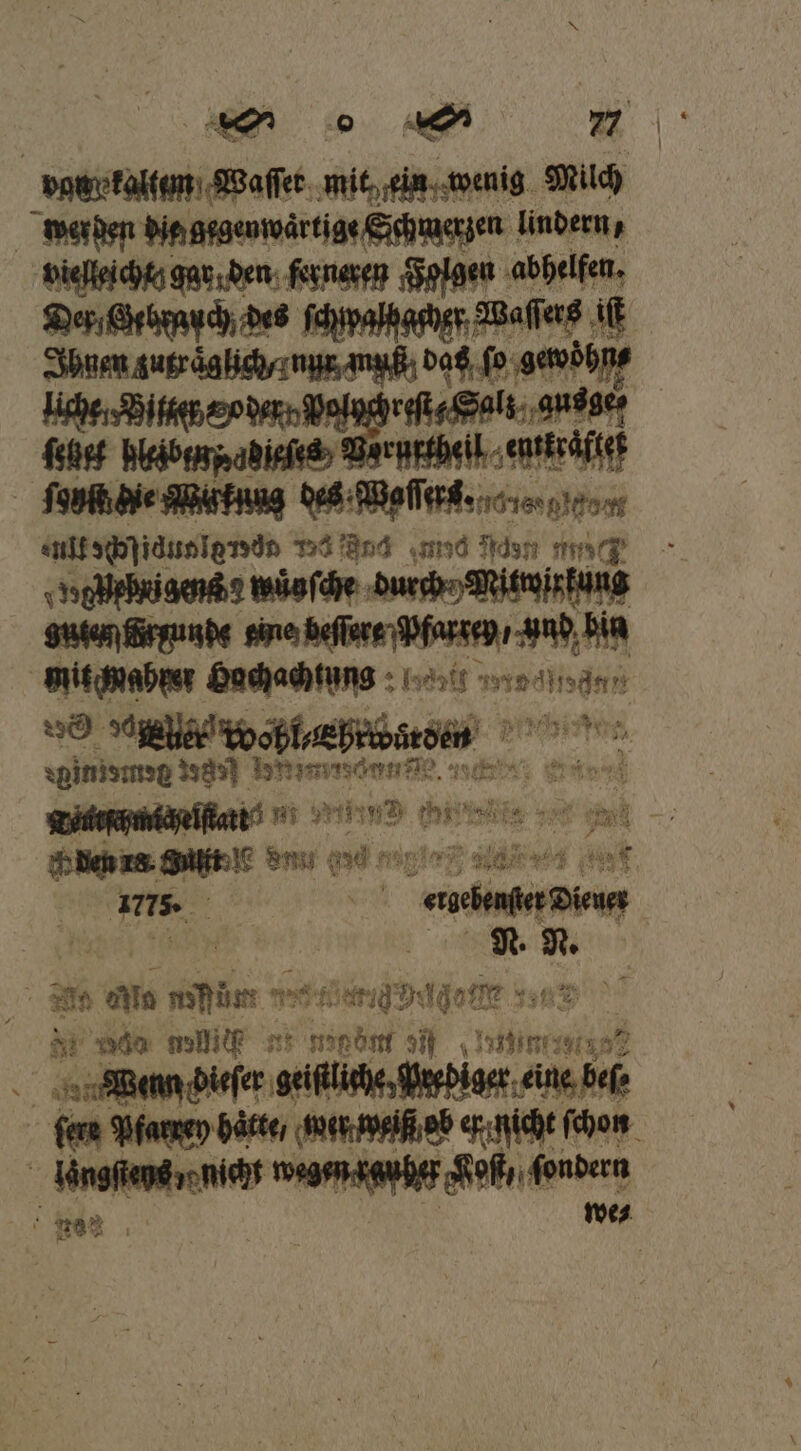 o 77
von kaltem Waſſer mit ein wenig Milch
werden die gegenwärtige Schmerzen lindern,
vielleicht gar den ferneren Folgen abhelfen.
Der Gebrauch des ſchwalbacher Waſſers iſt
Ihnen zuträglich, nur muß das ſo gewöhn⸗
liche Bitter⸗ oder Polychreſt⸗Salz ausge⸗
ſetzet bleiben, dieſes Vorurtheil entkräftet
ſonſt die Wirkung des Waſſers.
Uebrigens wünſche durch Mitwirkung
guter Freunde eine beſſere Pfarrey, und bin
mit wahrer Hochachtung
Euer Wohl⸗Ehrwürden
den 18.
1775.
ergebenſter Diener
N. N.
Wenn dieſer geiſtliche Prediger eine beſ⸗
ſere Pfarrey hätte, wer weiß ob er nicht ſchon
längſtens, nicht wegen rauher Koſt, ſondern
we⸗